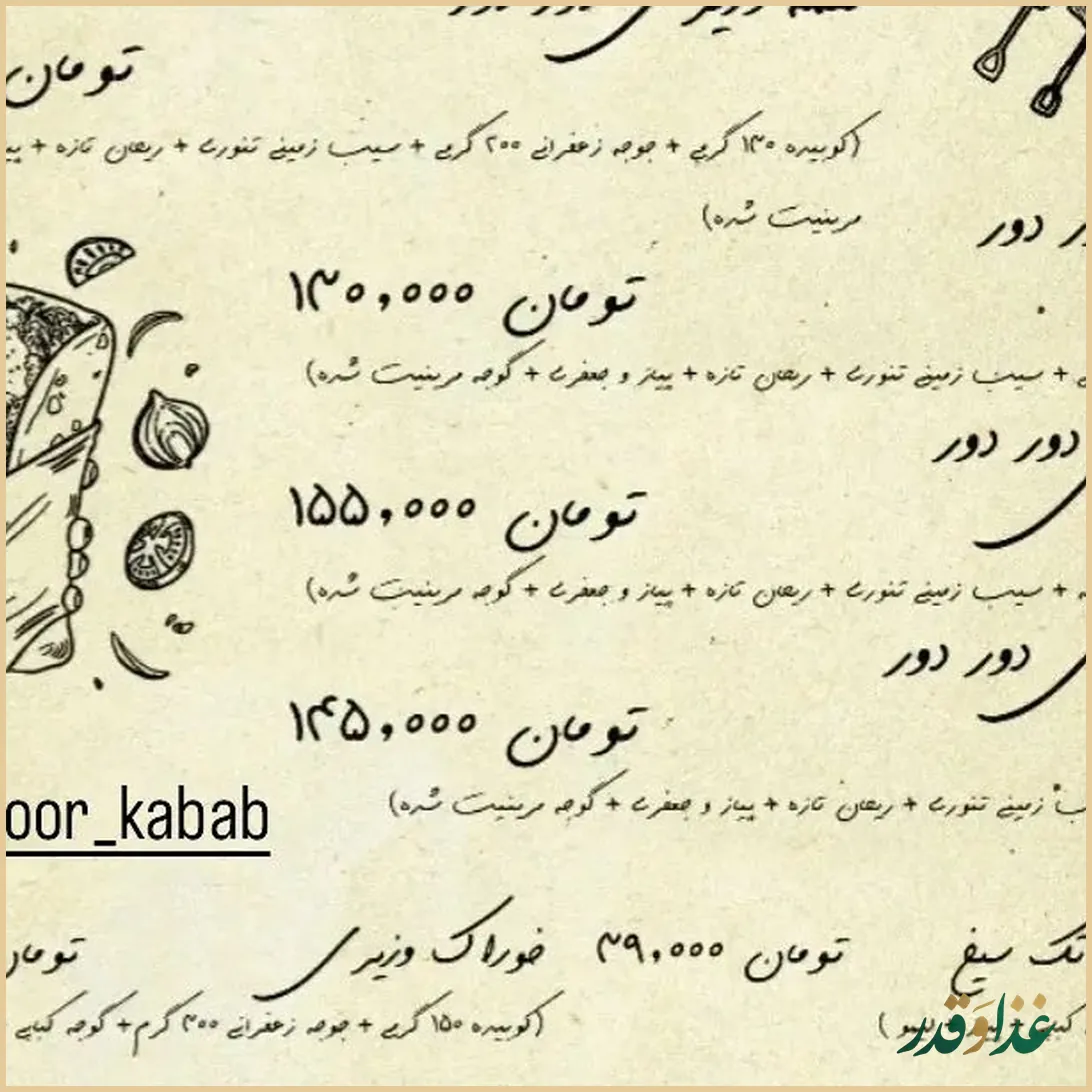 تومان
(کوبیده ۱۳۰ گرمی + جوجه زعفرانی ۲۰۰ گرمی + سیب زمینی تنوری + ریحان تازه +
مرینیت شده)
دور
۱۳۰,۰۰۰ تومان
+ سیب زمینی تنوری + ریحان تازه + پیاز و جعفری + گوجه مرینیت شده)
دور دور
۱۵۵,۰۰۰ تومان
+ سیب زمینی تنوری + ریحان تازه + پیاز و جعفری + گوجه مرینیت شده)
دور دور
۱۴۵,۰۰۰ تومان
زمینی تنوری + ریحان تازه + پیاز و جعفری + گوجه مرینیت شده)
oor_kabab
تک سیخ ۳۹,۰۰۰ تومان
خوراک وزیری
(کوبیده ۱۵۰ گرمی + جوجه زعفرانی ۳۰۰ گرم + گوجه کبابی
غذا و قدر